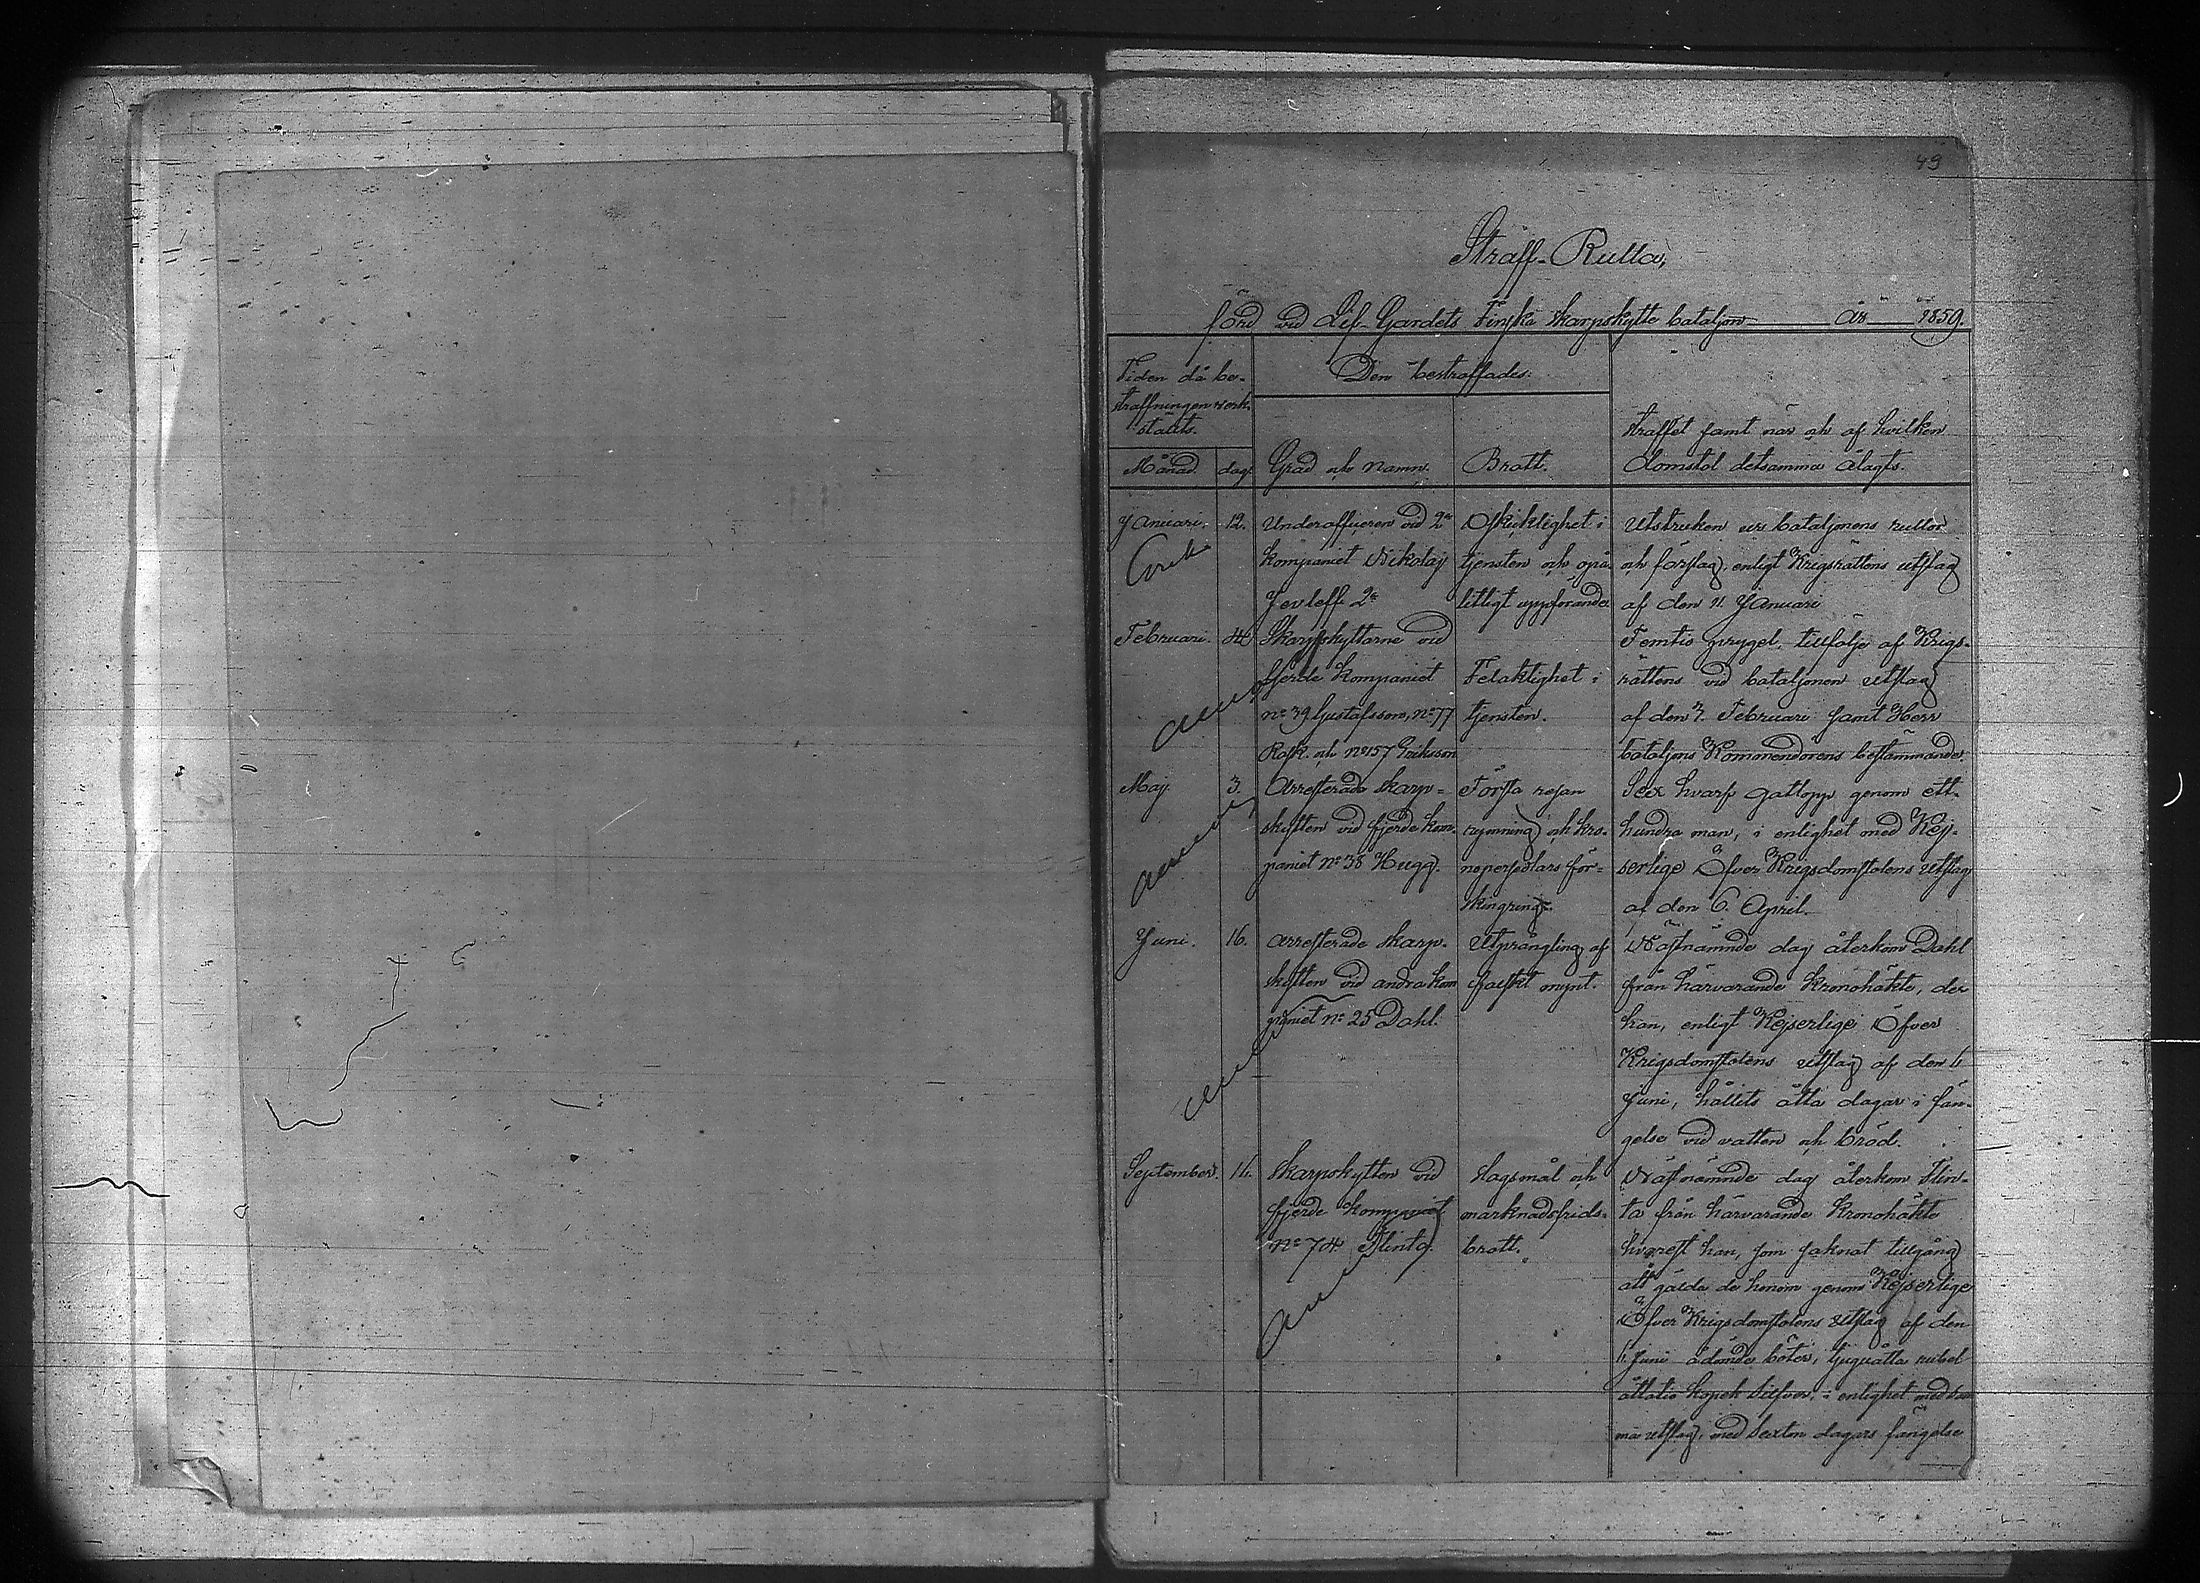 49
Straff-Rulla,
förd vid Lif-Gardets Finska Skarpskytte bataljon År 1859.
Tiden då be-
straffningen verk-
stälts.
Månad. dag.
Den bestraffades:
Grad och namn. Brott.
Straffet samt när och af hvilken
domstol detsamma ålagts.
Januari. 12.
Underofficeren vid 2a
kompaniet Nikolaj
Jevleff 2a
Oskicklighet i
tjensten och opå-
litligt uppförande.
Utstruken urs bataljonens rullor
och förslag, enligt Krigsrättens utslag
af den 11. Januari
Februari. 4.
Skarpskyttarne vid
fjerde kompaniet
No 39 Gustafsson, No 77
Rask och No 157 Eriksson
Felaktighet i
tjensten.
Femtio prygel, tillfölje af Krigs-
rättens vid bataljonen utslag
af den 3. Februari samt Herr
bataljons Kommendorens bestämmande.
Maj. 3.
Arresterade skarp-
skytten vid fjerde kom-
paniet No 38 Hugg.
Första resan
rymning och kro-
nopersedlars för-
skingring.
Sex hvarf gatlopp genom ett-
hundra man, i enlighet med Kej-
serlige Öfver Krigsdomstolens utslag
af den 6. April.
Juni. 16.
Arresterade skarp-
skytten vid andra kom
paniet No 25 Dahl.
Utprångling af
falskt mynt.
Näst nämnde dag återkom Dahl
från härvarande Kronohäkte, der
han, enligt Kejserlige Öfver
Krigsdomstolens utslag af den 6
Juni, hållits åtta dagar i fän-
gelse vid vatten och bröd.
September. 14.
Skarpskytten vid
fjerde kompaniet
No 74 Flinta.
Slagsmål och
marknadsfrids-
brott.
Näst nämnde dag återkom Flin-
ta från härvarande Kronohäkte
hvarest han, som saknat tillgång
att gälda de honom genom Kejserlige
Öfver Krigsdomstolens utslag af den
6. Juni ådömde böter, tjuguåtta rubel
åttatio kopek silfver, i enlighet med sam
ma utslag, med sexton dagars fängelse